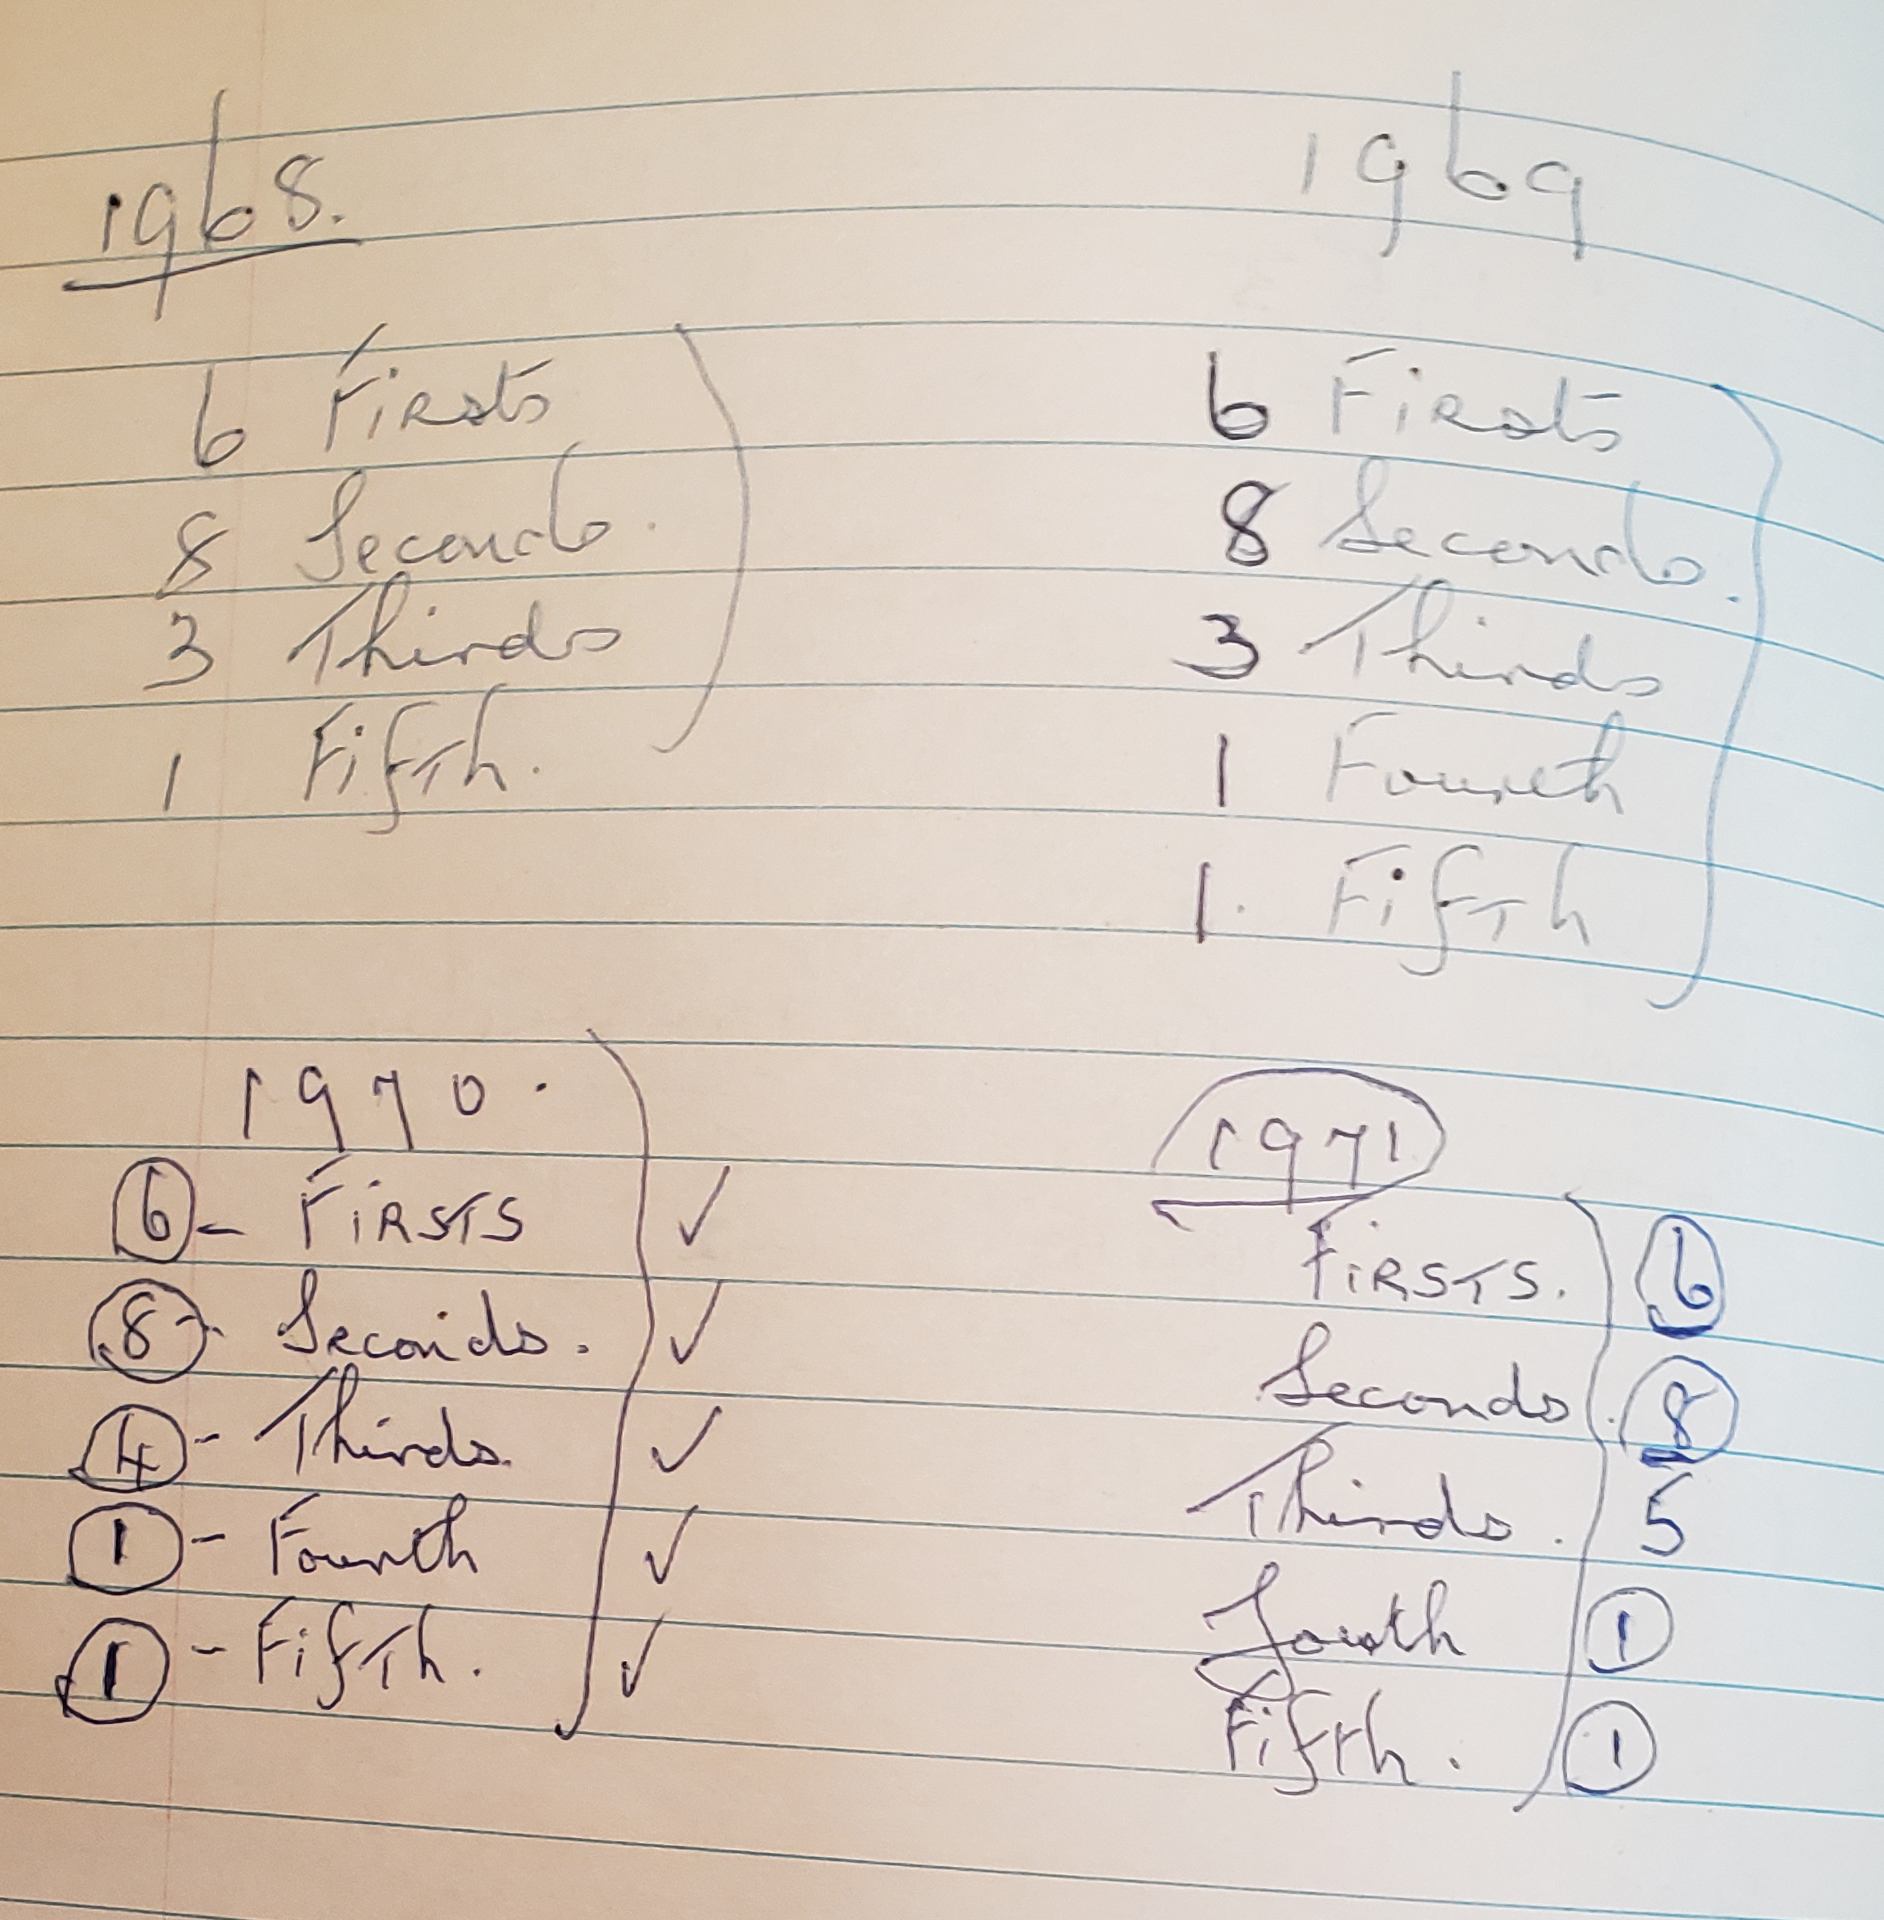 1968.
6 Firsts
8 Seconds.
3 Thirds
1 Fifth.
1969
6 Firsts
8 Seconds.
3 Thirds
1 Fourth
1. Fifth
1970.
6 - FiRSTS ✓
8 - Seconds. ✓
4 - Thirds. ✓
1 - Fourth ✓
1 - Fifth. ✓
1971
FiRSTS. 6
Seconds. 8
Thirds. 5
Fouth 1
Fifth. 1